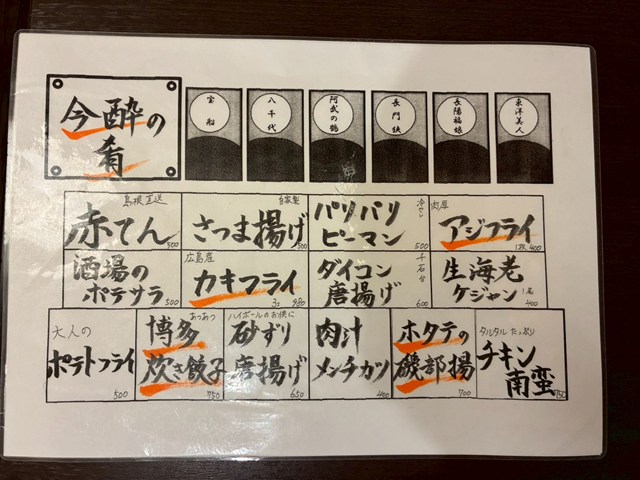 今酔の
肴
宝船
八千代
阿武の鶴
長門峡
長陽福娘
東洋美人
島根直送
赤てん
500
自家製
さつま揚げ
500
冷やし
パリパリ
ピーマン
500
肉厚
アジフライ
1枚 400
酒場の
ポテサラ
500
広島産
カキフライ
3コ 980
千石台
ダイコン
唐揚げ
600
生海老
ケジャン
1尾
400
大人の
ポテトフライ
500
あつあつ
博多
炊き餃子
750
ハイボールのお供に
砂ずり
唐揚げ
650
肉汁
メンチカツ
400
ホタテの
磯部揚
700
タルタルたっぷり
チキン
南蛮
750